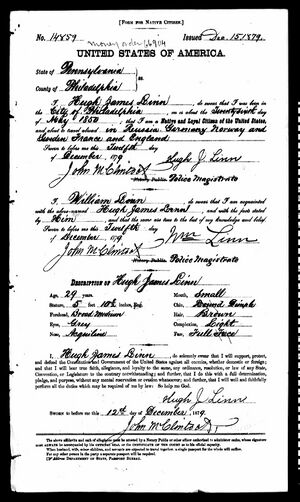 [FORM FOR NATIVE CITIZEN.]
No. 14859 Issued Dec. 15, 1879.
money order
UNITED STATES OF AMERICA.
State of Pennsylvania
County of Philadelphia ss.
I, Hugh James Linn, do swear that I was born in
the City of Philadelphia, on or about the Twenty ninth day
of May 1850; that I am a Native and Loyal Citizen of the United States,
and about to travel abroad in Russia Germany Norway and
Sweden France and England
Sworn to before me this Twelfth day
of December, 1879 Hugh J. Linn
John M. Clintock
Notary Public. Police Magistrate
I, William Linn, do swear that I am acquainted
with the above-named Hugh James Linn, and with the facts stated
by Him, and that the same are true to the best of my knowledge and belief.
Sworn to before me this Twelfth day
of December, 1879 Wm Linn
John M. Clintock
Notary Public. Police Magistrate
DESCRIPTION OF Hugh James Linn
Age, 29 years. Mouth, Small
Stature, 5 feet 10½ inches, Eng. Chin, Round Dimple
Forehead, Broad Medium Hair, Brown
Eyes, Grey Complexion, Light
Nose, Aquiline Face, Full Face
I, Hugh James Linn, do solemnly swear that I will support, protect,
and defend the Constitution and Government of the United States against all enemies, whether domestic or foreign;
and that I will bear true faith, allegiance, and loyalty to the same, any ordinance, resolution, or law of any State,
Convention, or Legislature to the contrary notwithstanding; and further, that I do this with a full determination,
pledge, and purpose, without any mental reservation or evasion whatsoever; and further, that I will well and faithfully
perform all the duties which may be required of me by law: So help me God.
Hugh J. Linn
SWORN to before me this 12th day of December, 1879.
John M. Clintock